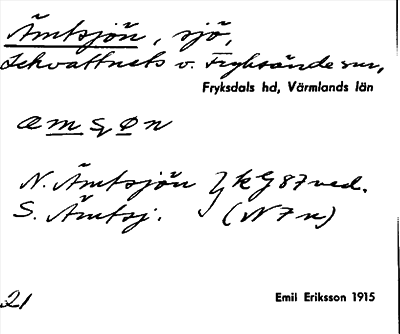 Ämtsjön, sjö,
Lekvattnets v. Fryksände sn,
Fryksdals hd, Värmlands län
æmʂøn
N. Ämtsjön } kG87ved.
S. Ämtsj. (N7n)
21
Emil Eriksson 1915